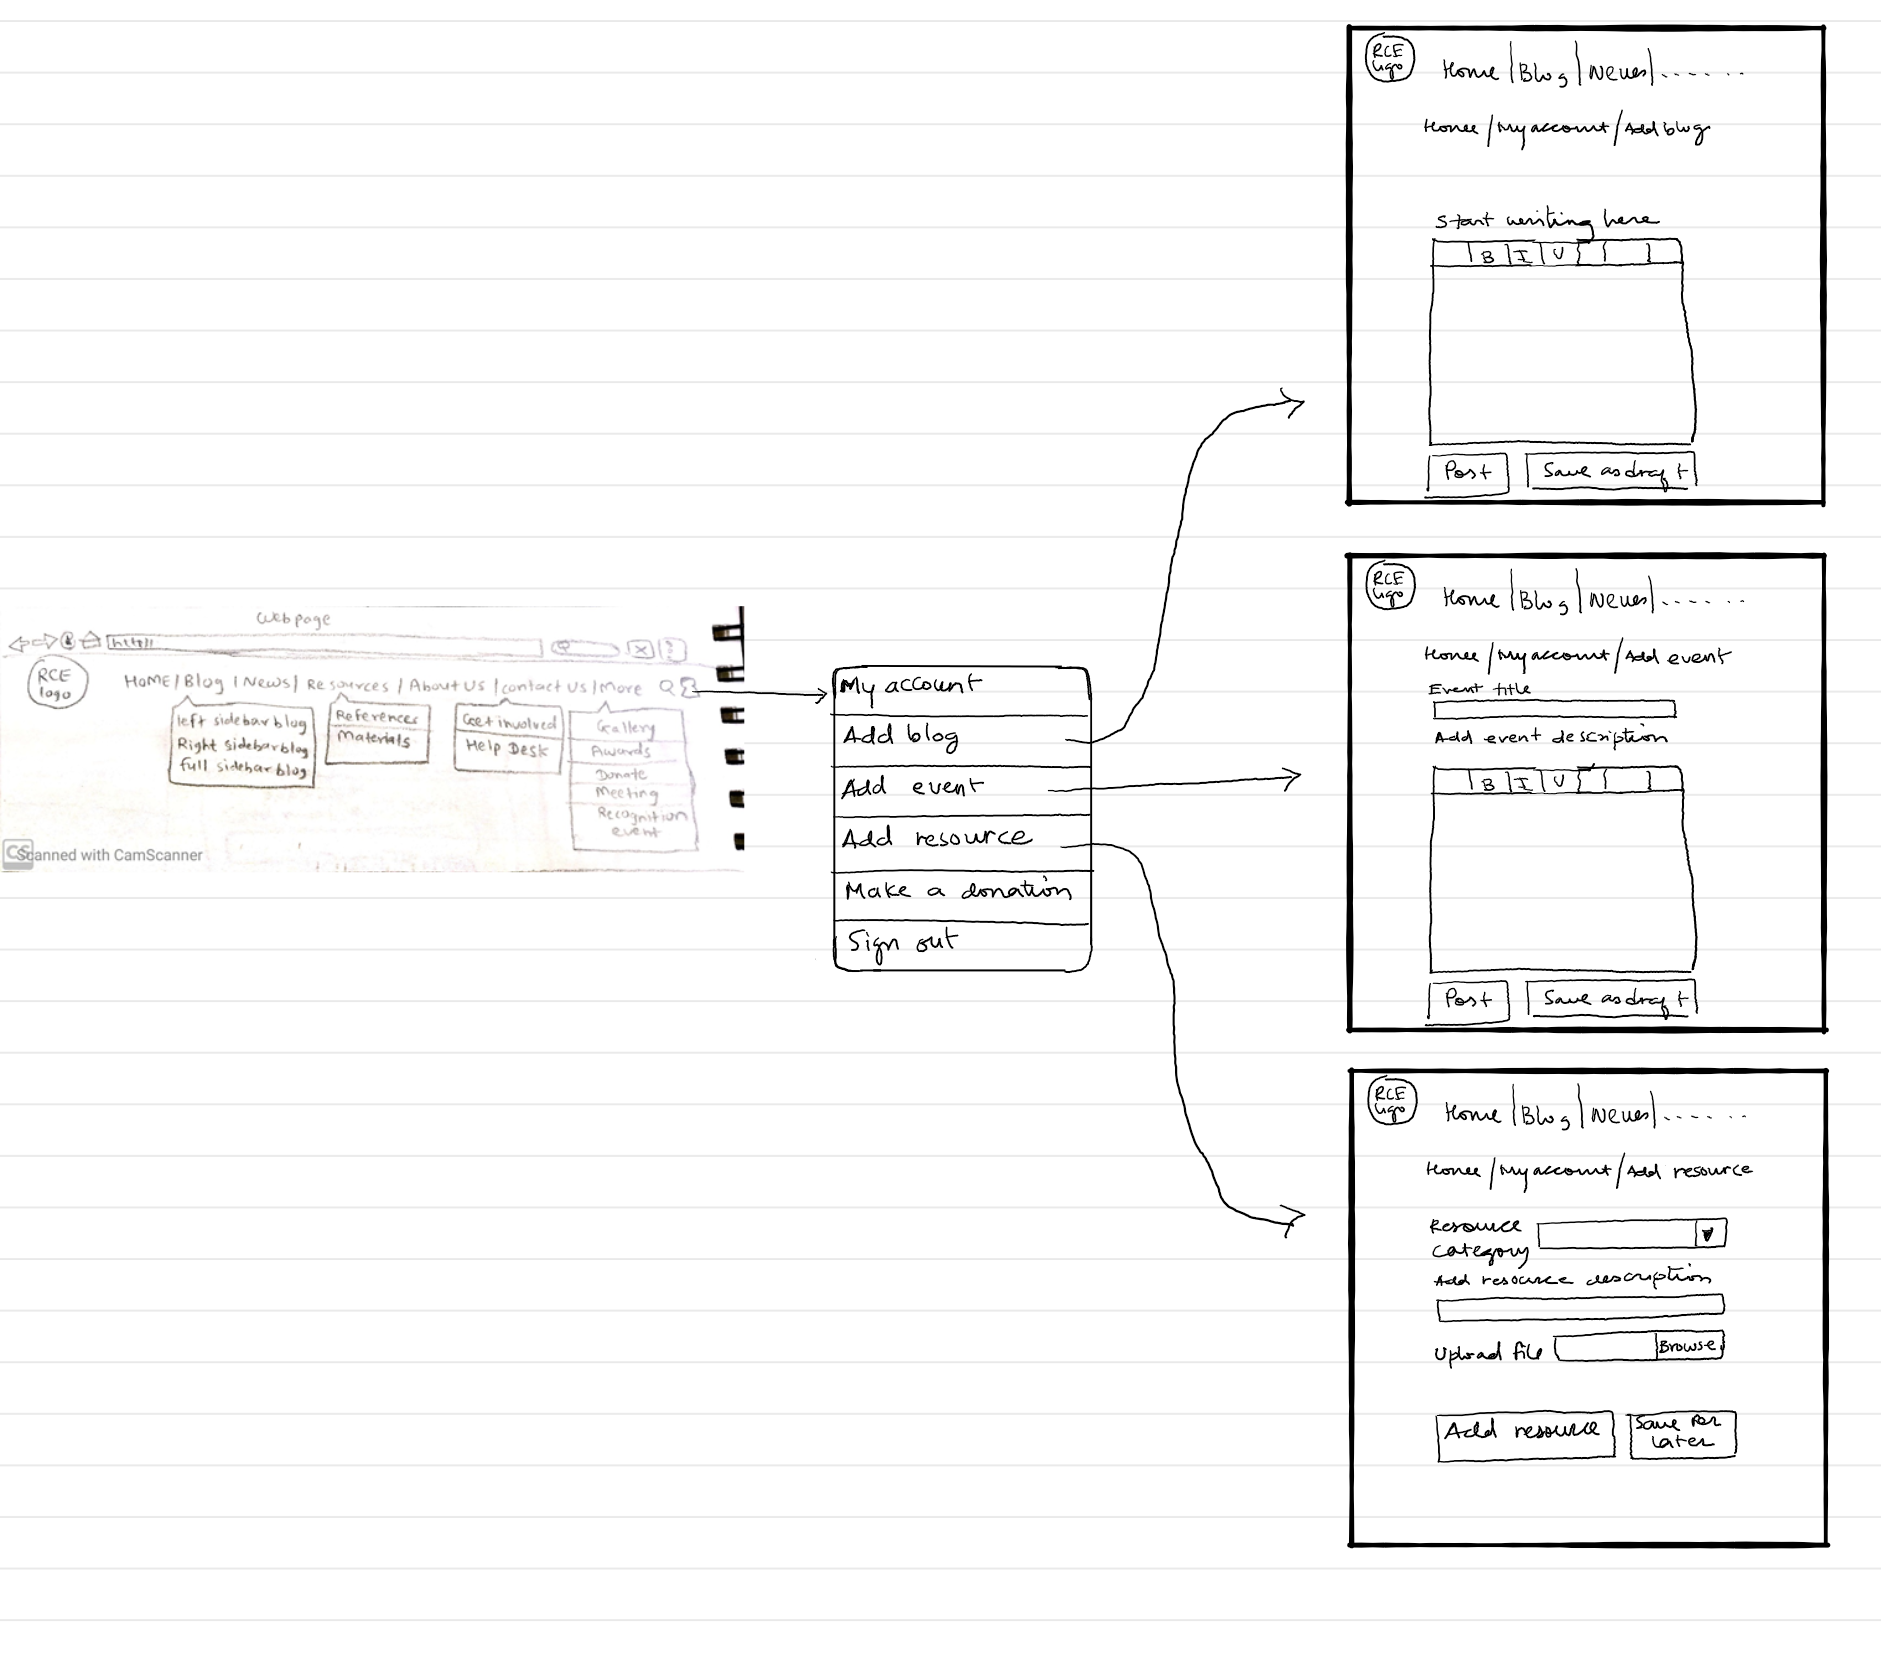 Webpage
http://
RCE
logo
HOME/Blog | News | Resources / About Us / contact Us / More
left sidebar blog
Right sidebar blog
full sidebar blog
References
Materials
Get involved
Help Desk
Gallery
Awards
Donate
Meeting
Recognition
event
CS
Scanned with CamScanner
My account
Add blog
Add event
Add resource
Make a donation
Sign out
RCE
Logo
Home | Blog | News | .......
Home / My account / Add blog
Start writing here
B I U
Post
Save as draft
RCE
Logo
Home | Blog | News | .......
Home / My account / Add event
Event title
Add event description
B I U
Post
Save as draft
RCE
Logo
Home | Blog | News | .......
Home / My account / Add resource
Resource
category
Add resource description
Upload file
Browse
Add resource
Save for
later